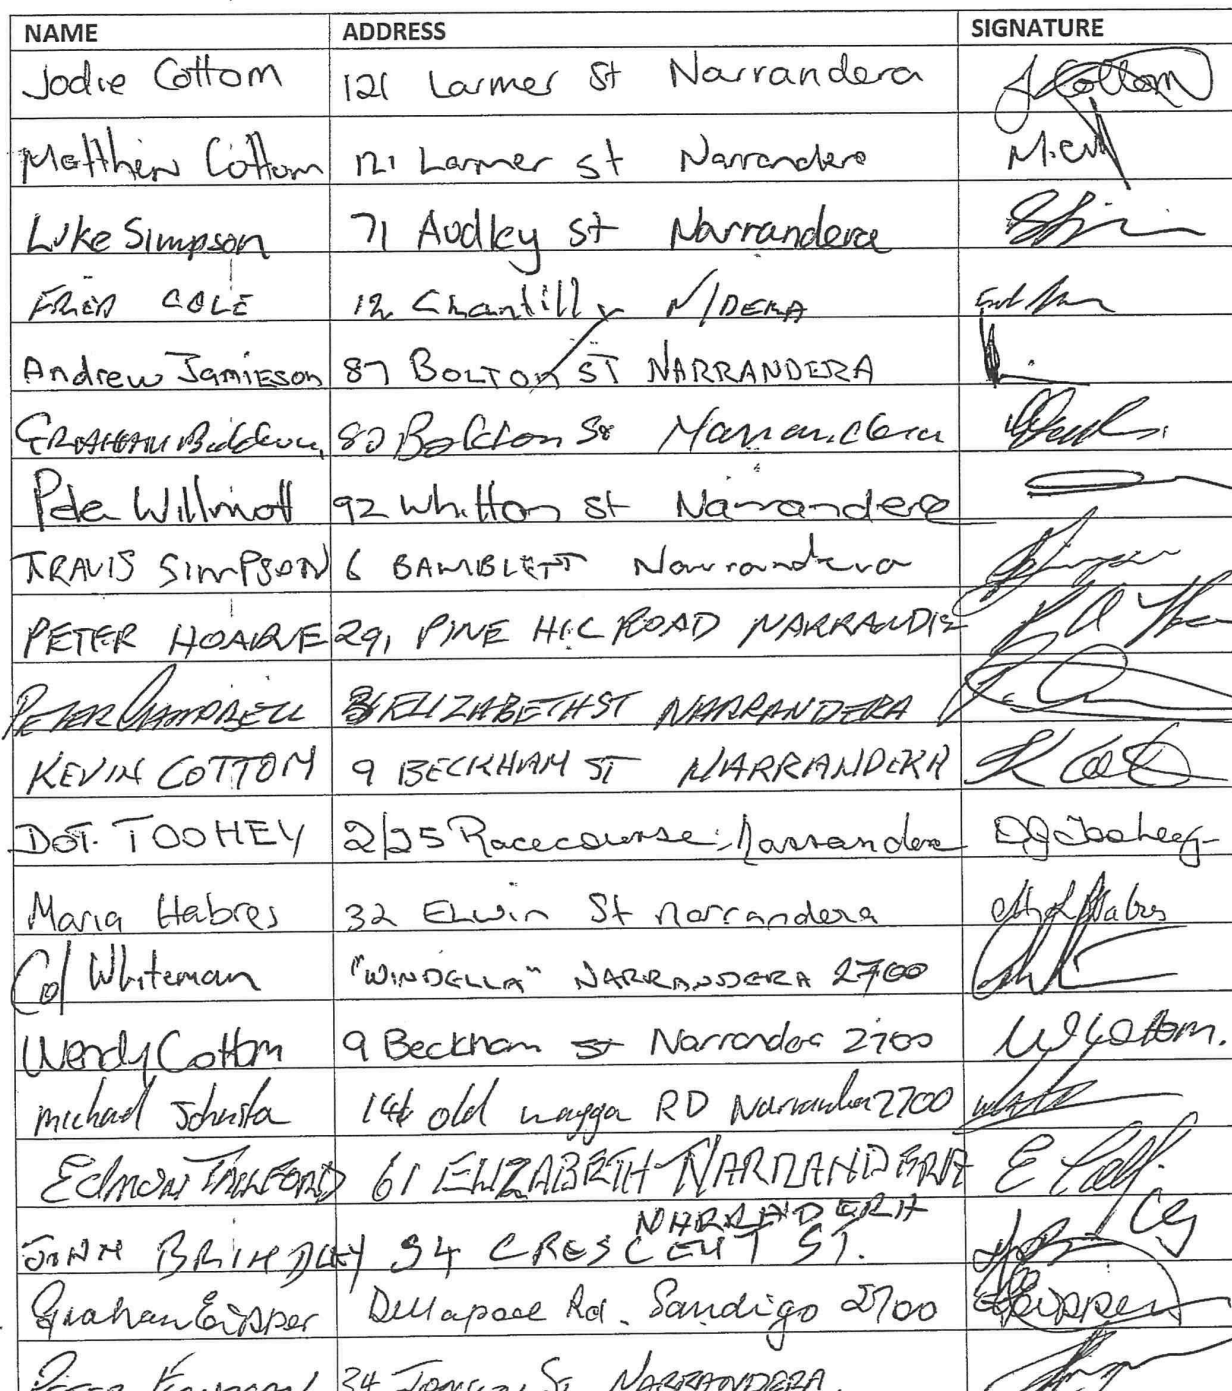 NAME ADDRESS SIGNATURE
Jodie Cottom 121 Larmer St Narrandera J Cottom
Matthew Cottom 121 Larmer St Narrandera
Luke Simpson 71 Audley St Narrandera
FRED COLE 12 Chantilly N/DERA
Andrew JAMIESON 87 BOLTON ST NARRANDERA
GRAHAM 80 Bolton St Narrandera
Pete Willmott 92 Whitton St Narrandera
TRAVIS SIMPSON 6 BAMBLETT Narrandera
PETER HOARE 29, PINE HILL ROAD
PETER CAMPBELL ELIZABETH ST NARRANDERA
KEVIN COTTOM 9 BECKHAM ST NARRANDERA
DOT. TOOHEY 2/25 Racecourse Narrandera DJ Toohey
Maria Habres 32 Elwin St Narrandera Habres
Col Whiteman "WINDELLA" NARRANDERA 2700
Wendy Cottom 9 Beckham St Narrandera 2700 W Cottom.
Michael old wagga RD Narrandera 2700
EDMON 61 ELIZABETH NARRANDERA
NARRANDERA
JOHN BRINDLEY 94 CRESCENT ST.
Graham Eipper Rd. Sandigo 2700 Eipper
PETER 34 ST NARRANDERA.